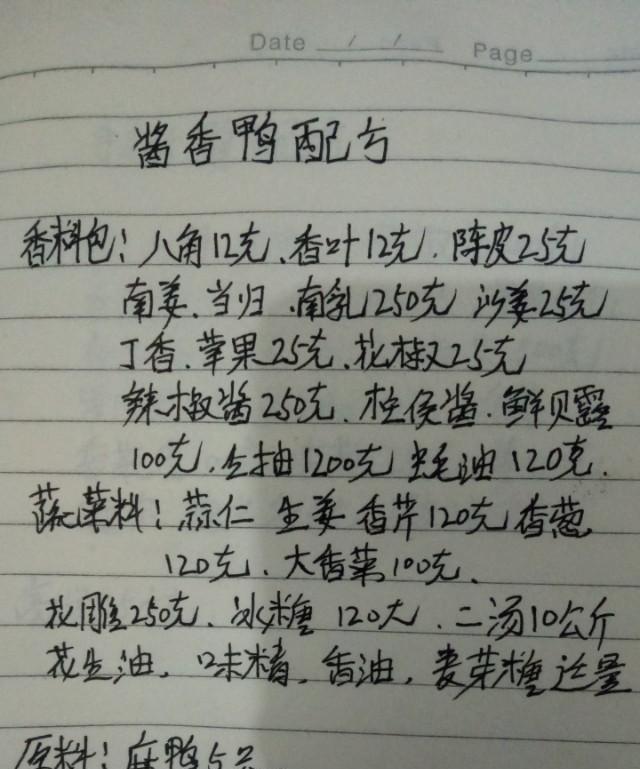 Date / / Page
酱香鸭配亏
香料包:八角12克、香叶12克.陈皮25克
南姜、当归、南乳1250克 沙姜25克
丁香、草果25克、花椒25克
辣椒酱250克.柱侯酱.鲜贝露
100克.生抽1200克 蚝油120克.
蔬菜料:蒜仁 生姜 香芹120克 香葱
120克、大香菜100克、
花雕250克、冰糖 120大.二汤10公斤
花生油,味精,香油,麦芽糖适量
原料:麻鸭5只